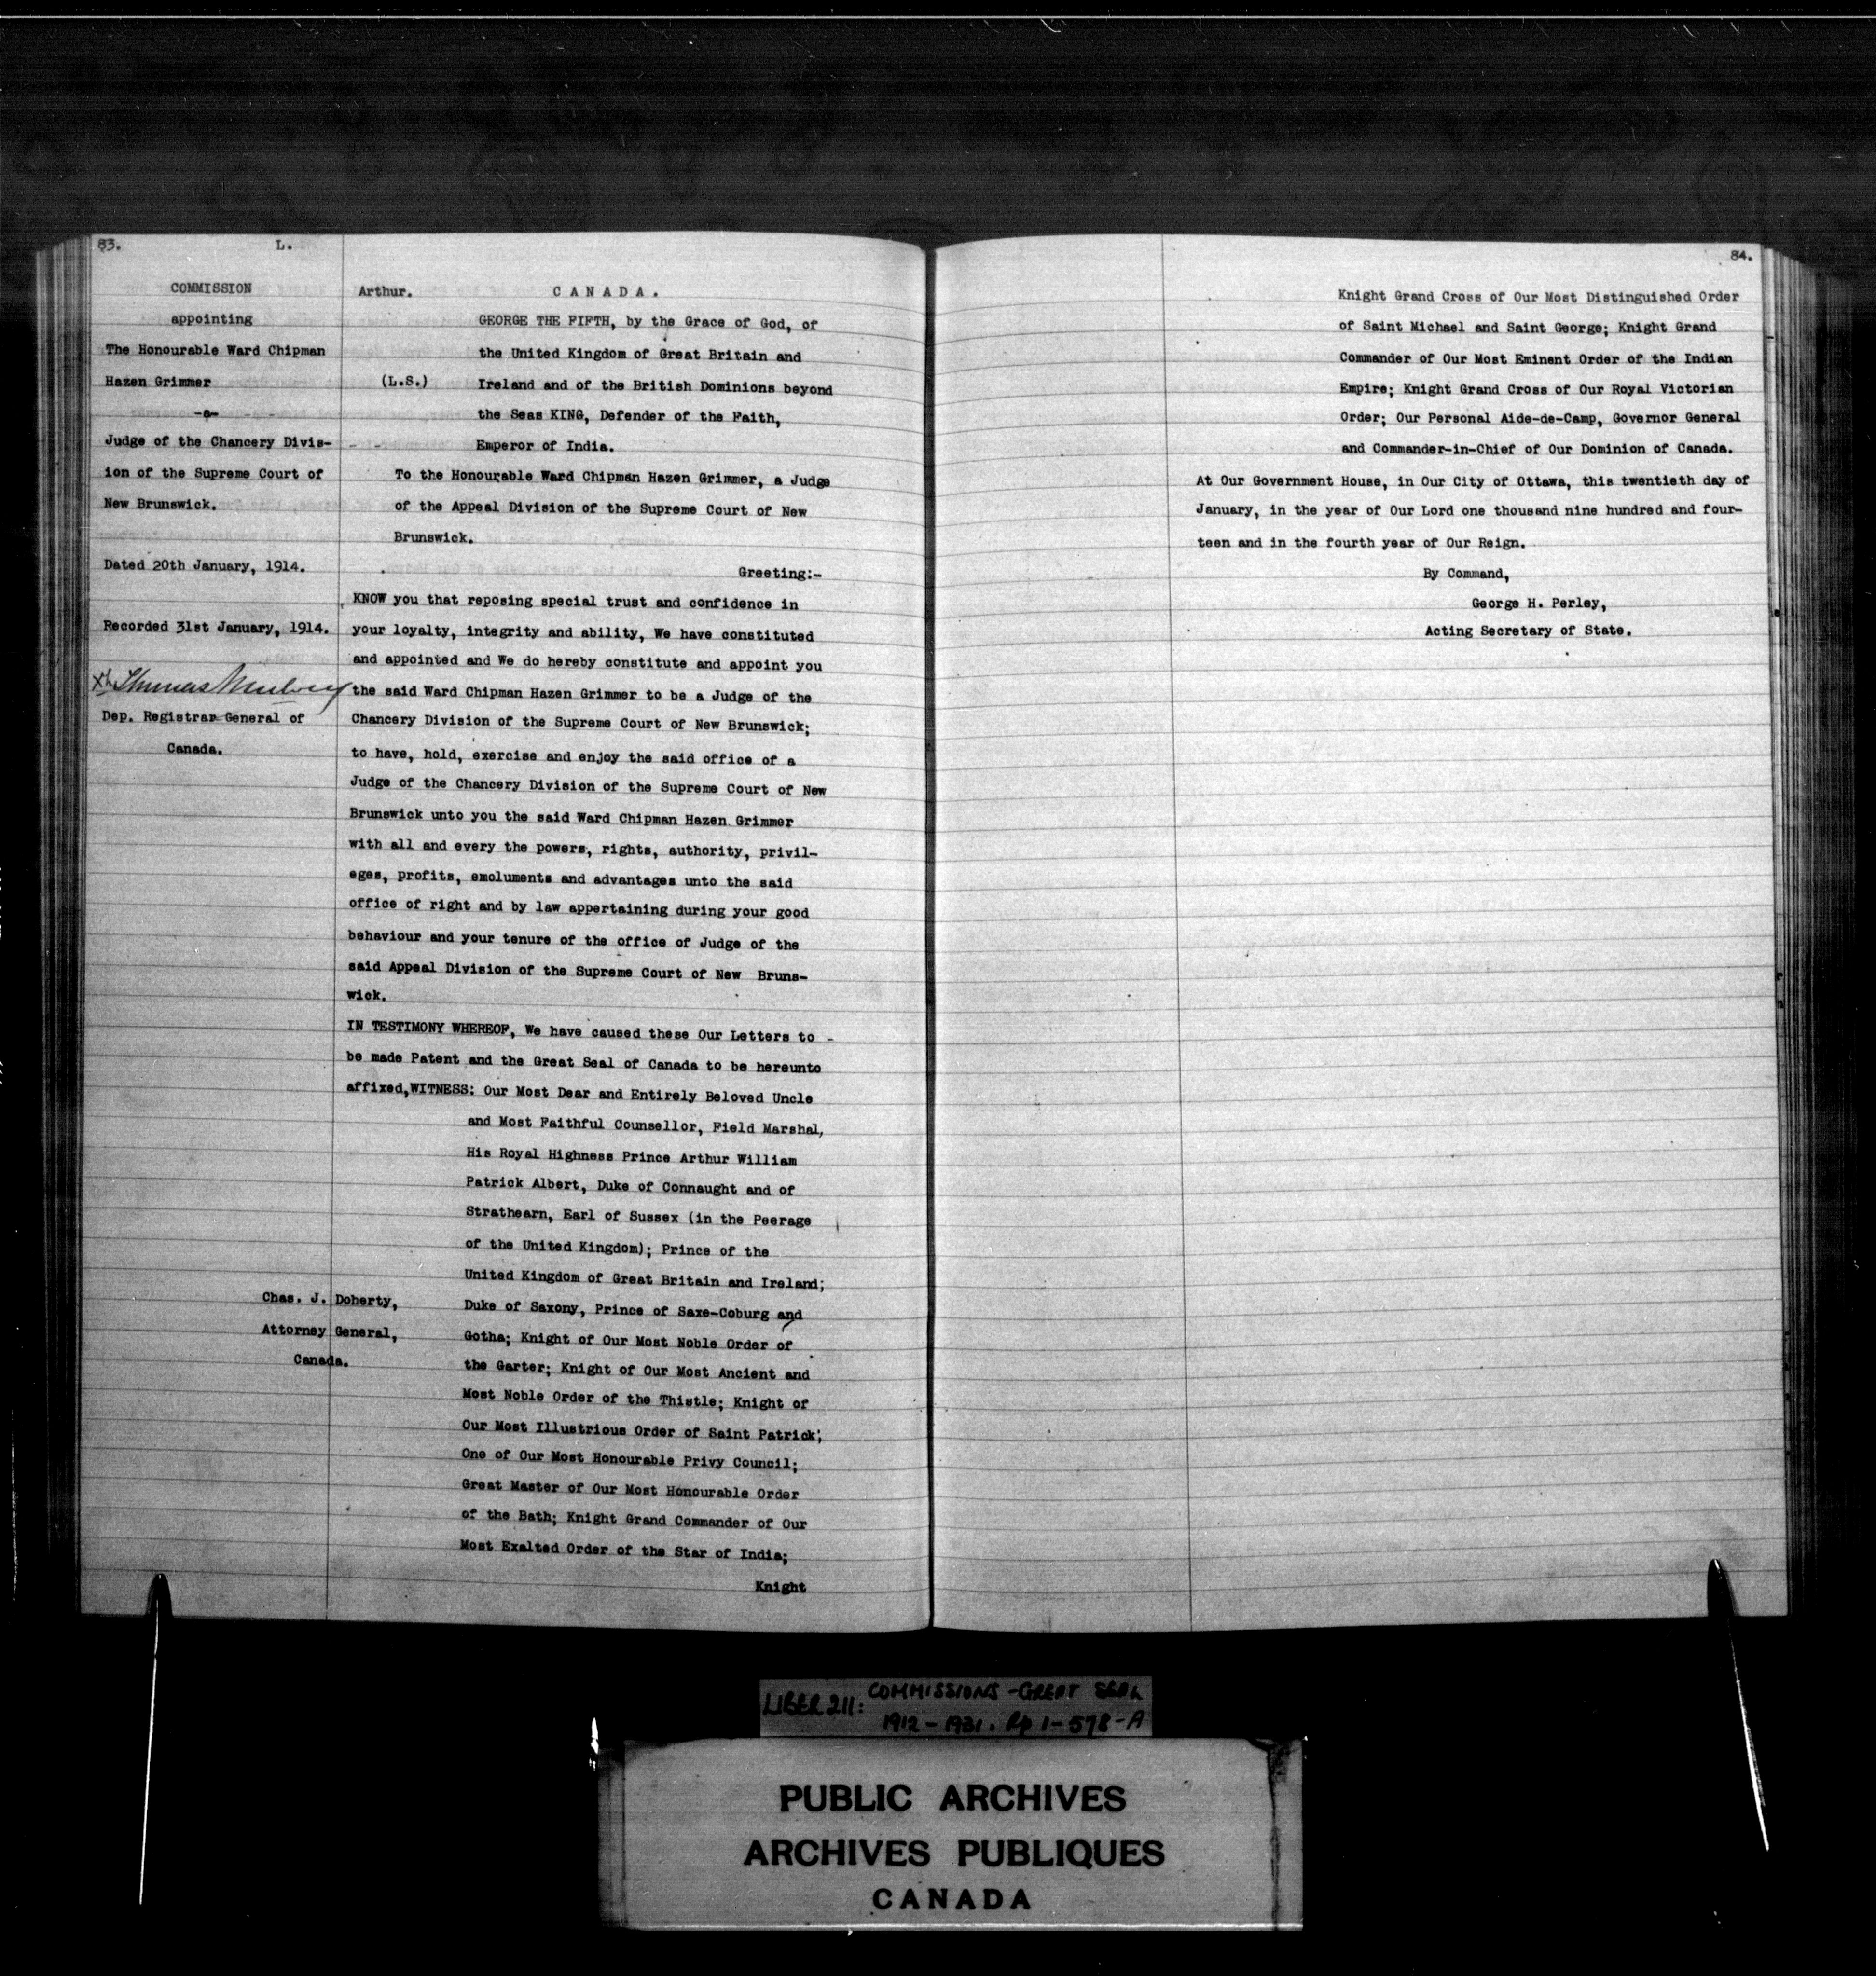 83.
L.
COMMISSION
appointing
The Honourable Ward Chipman
Hazen Grimmer
-a-
Judge of the Chancery Divis-
ion of the Supreme Court of
New Brunswick.
Dated 20th January, 1914.
Recorded 31st January, 1914.
Thomas Mulvey
Dep. Registrar General of
Canada.
Arthur.
CANADA.
(L.S.)
GEORGE THE FIFTH, by the Grace of God, of
the United Kingdom of Great Britain and
Ireland and of the British Dominions beyond
the Seas KING, Defender of the Faith,
Emperor of India.
To the Honourable Ward Chipman Hazen Grimmer, a Judge
of the Appeal Division of the Supreme Court of New
Brunswick.
Greeting:-
KNOW you that reposing special trust and confidence in
your loyalty, integrity and ability, We have constituted
and appointed and We do hereby constitute and appoint you
the said Ward Chipman Hazen Grimmer to be a Judge of the
Chancery Division of the Supreme Court of New Brunswick;
to have, hold, exercise and enjoy the said office of a
Judge of the Chancery Division of the Supreme Court of New
Brunswick unto you the said Ward Chipman Hazen Grimmer
with all and every the powers, rights, authority, privil-
eges, profits, emoluments and advantages unto the said
office of right and by law appertaining during your good
behaviour and your tenure of the office of Judge of the
said Appeal Division of the Supreme Court of New Bruns-
wick.
IN TESTIMONY WHEREOF, We have caused these Our Letters to -
be made Patent and the Great Seal of Canada to be hereunto
affixed, WITNESS: Our Most Dear and Entirely Beloved Uncle
and Most Faithful Counsellor, Field Marshal,
His Royal Highness Prince Arthur William
Patrick Albert, Duke of Connaught and of
Strathearn, Earl of Sussex (in the Peerage
of the United Kingdom); Prince of the
United Kingdom of Great Britain and Ireland;
Duke of Saxony, Prince of Saxe-Coburg and
Gotha; Knight of Our Most Noble Order of
the Garter; Knight of Our Most Ancient and
Most Noble Order of the Thistle; Knight of
Our Most Illustrious Order of Saint Patrick;
One of Our Most Honourable Privy Council;
Great Master of Our Most Honourable Order
of the Bath; Knight Grand Commander of Our
Most Exalted Order of the Star of India;
Knight
Chas. J. Doherty,
Attorney General,
Canada.
84.
Knight Grand Cross of Our Most Distinguished Order
of Saint Michael and Saint George; Knight Grand
Commander of Our Most Eminent Order of the Indian
Empire; Knight Grand Cross of Our Royal Victorian
Order; Our Personal Aide-de-Camp, Governor General
and Commander-in-Chief of Our Dominion of Canada.
At Our Government House, in Our City of Ottawa, this twentieth day of
January, in the year of Our Lord one thousand nine hundred and four-
teen and in the fourth year of Our Reign.
By Command,
George H. Perley,
Acting Secretary of State.
LIBER 211: COMMISSIONS - GREAT SEAL
1912 - 1931. Pp 1 - 578-A
PUBLIC ARCHIVES
ARCHIVES PUBLIQUES
CANADA